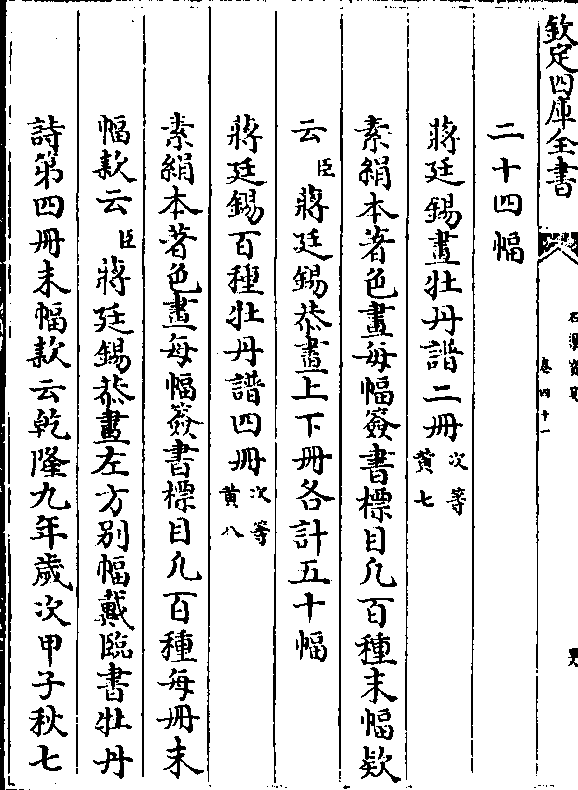 欽定四庫全書
石渠寶笈
卷四十一
二十四幅
蔣廷錫畫牡丹譜二册次等黃七
素絹本著色畫每幅簽書標目凡百種末幅欵
云臣蔣廷錫恭畫上下册各計五十幅
蔣廷錫百種牡丹譜四册次等黃八
素絹本著色畫每幅簽書標目凡百種每册末
幅款云臣蔣廷錫恭畫左方別幅戴臨書牡丹
詩第四册末幅款云乾隆九年歲次甲子秋七